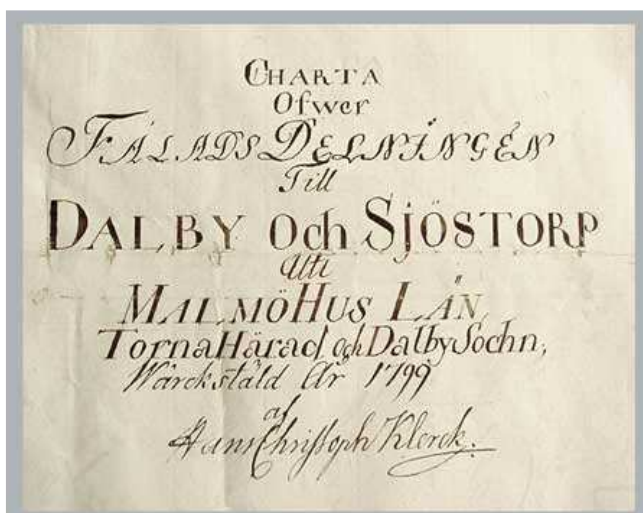 CHARTA
Ofwer
FÄLADSDELNINGEN
Till
DALBY Och SJÖSTORP
Uti
MALMÖHUS LÄN,
Torna Härad och Dalby Sochn,
Wärckstäld År 1799
af
Hans Christoph Klerck.